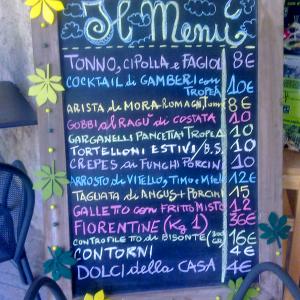 Il Menu
TONNO, CIPOLLA e FAGIOLI 8€
COCKTAIL di GAMBERI con TROPEA 10€
ARISTA di MORA ROMAGNOLA 8€
GOBBI al RAGÙ di COSTATA 10
GARGANELLI PANCETTA e TROPEA 10
TORTELLONI ESTIVI B.S. 10
CREPES ai FUNGHI PORCINI 10
ARROSTO di VITELLO, TIMO e Miele 12€
TAGLIATA di ANGUS e PORCINI 15
GALLETTO con FRITTO MISTO 12
FIORENTINE (Kg 1) 36€
CONTROFILETTO di BISONTE (300 GR) 16€
CONTORNI 4€
DOLCI della CASA 4€